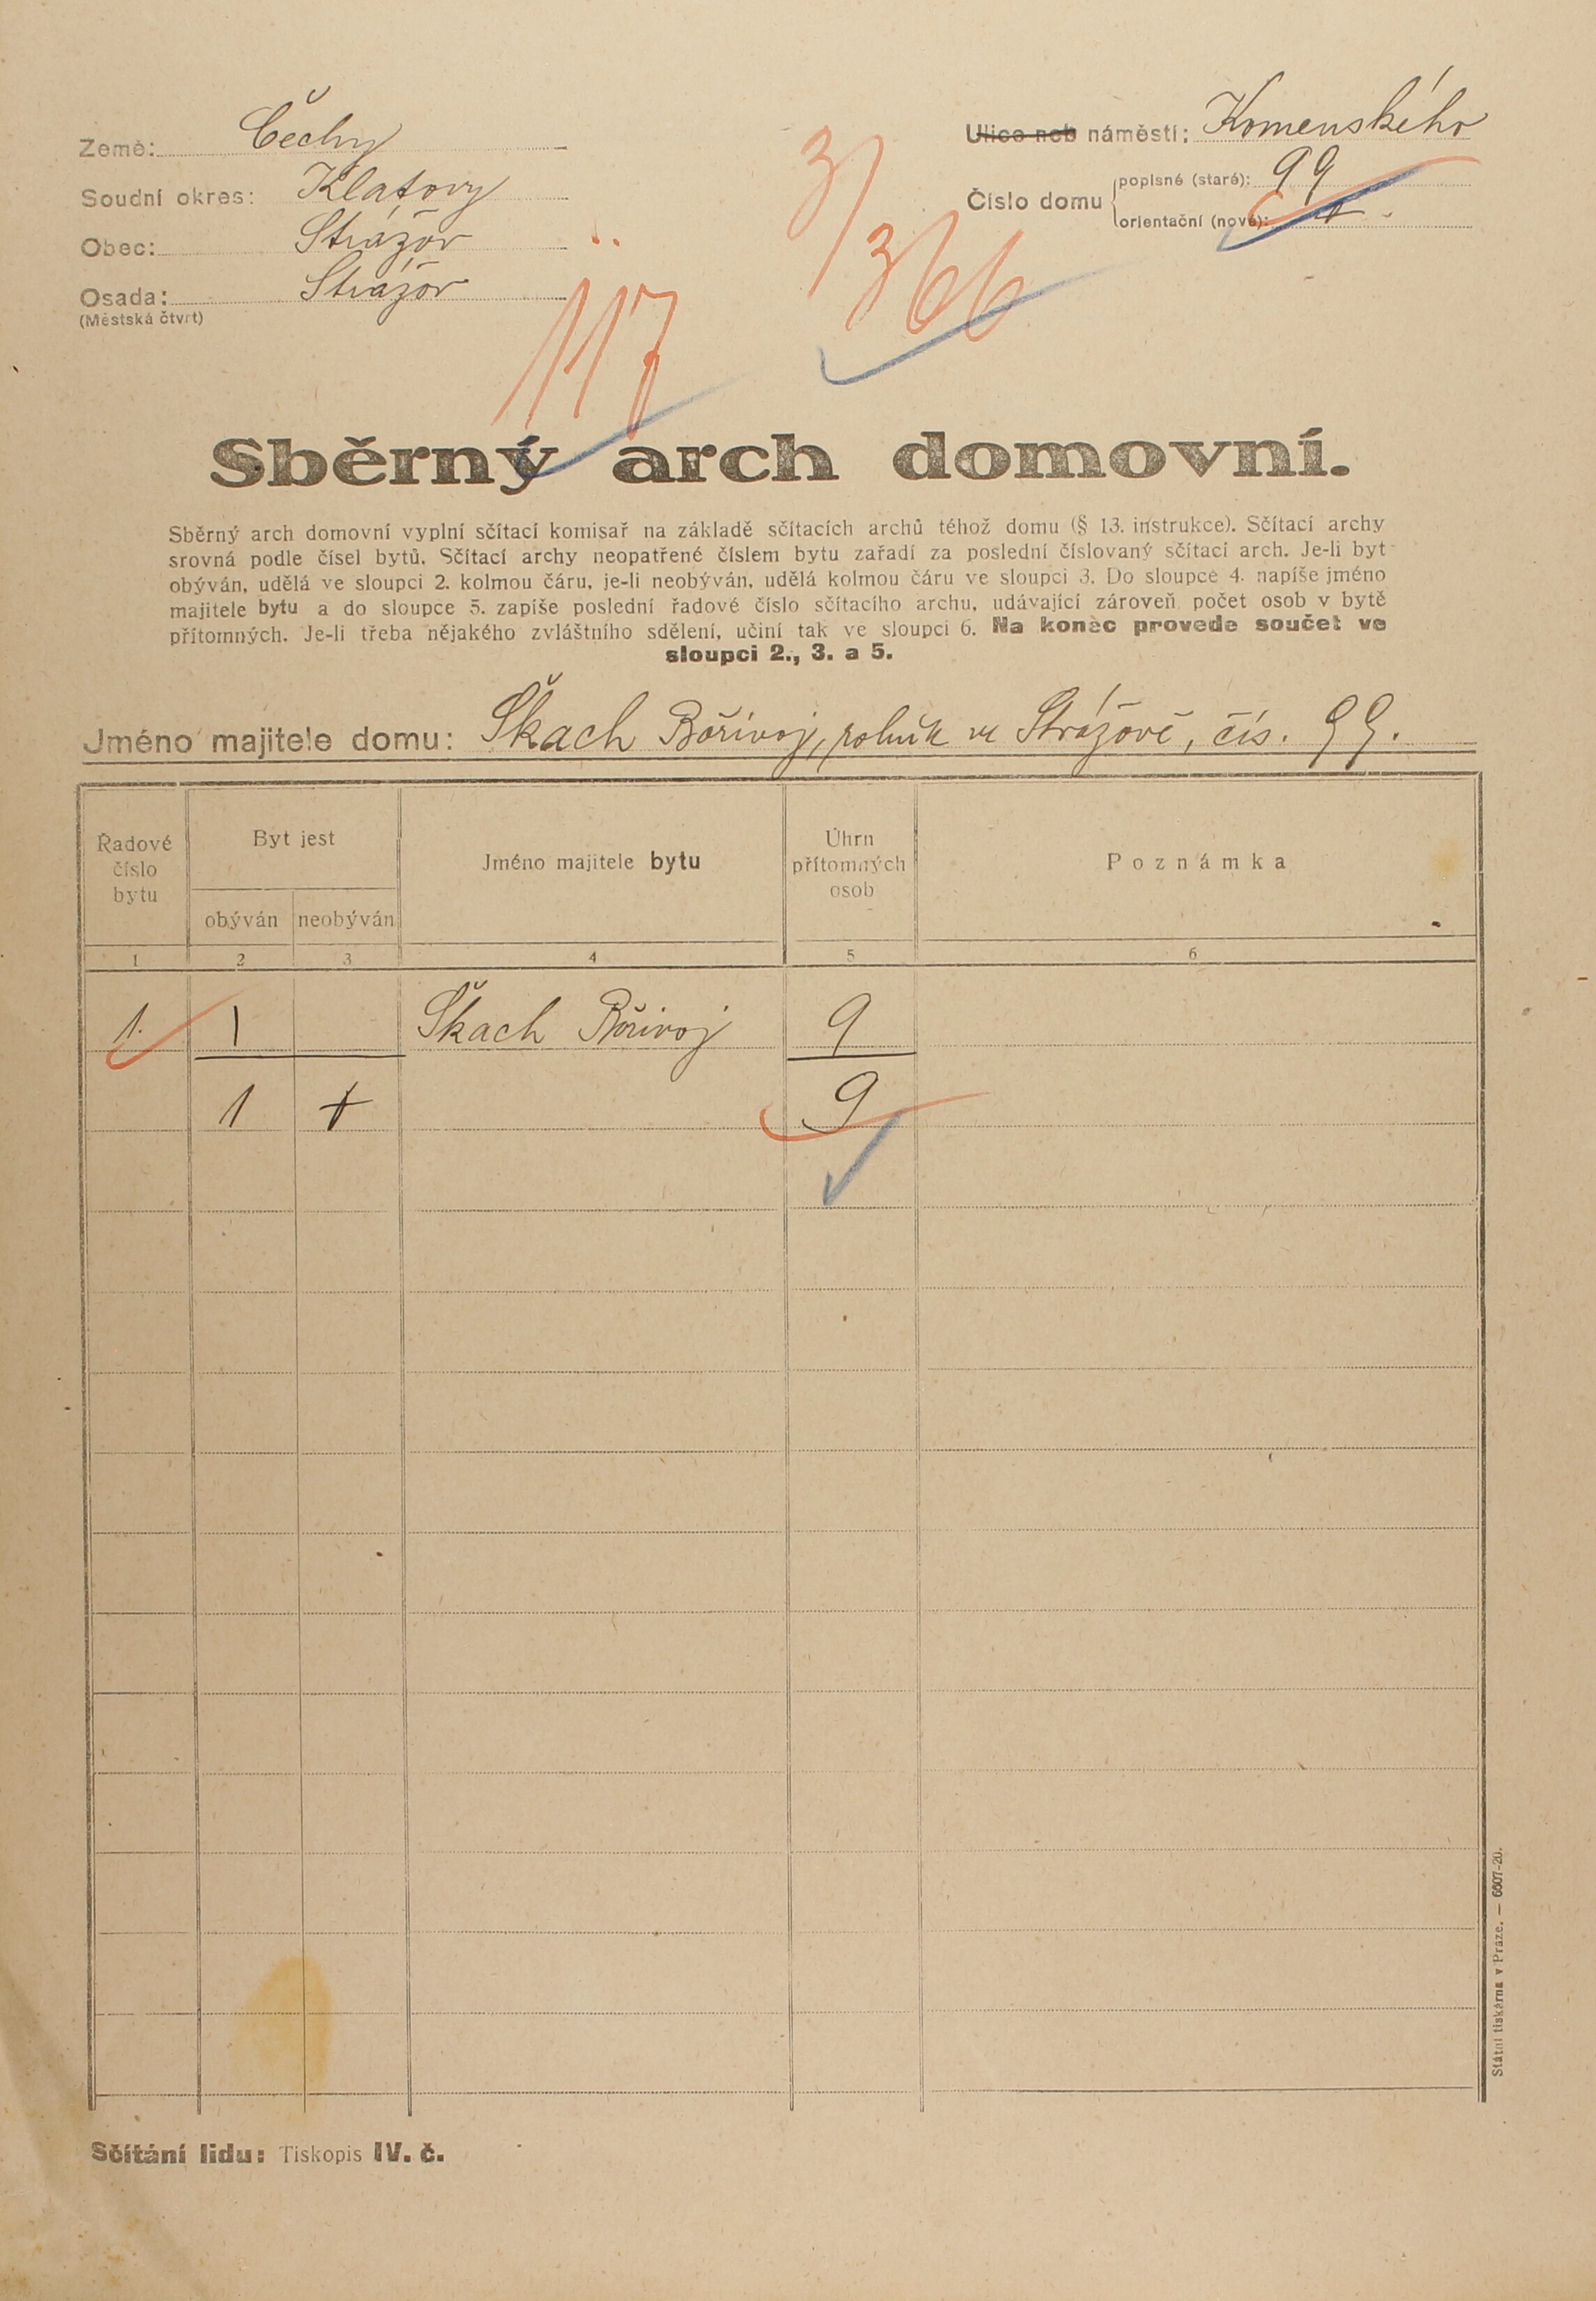 Země: Čechy
Soudní okres: Klatovy
Obec: Strážov
Osada: Strážov
(Městská čtvrt)
Ulice neb náměstí: Komenského
Číslo domu
popisné (staré): 99
orientační (nové): +
3/366
117
Sběrný arch domovní.
Sběrný arch domovní vyplní sčítací komisař na základě sčítacích archů téhož domu (§ 13. instrukce). Sčítací archy
srovná podle čísel bytů. Sčítací archy neopatřené číslem bytu zařadí za poslední číslovaný sčítací arch. Je-li byt
obýván, udělá ve sloupci 2. kolmou čáru, je-li neobýván, udělá kolmou čáru ve sloupci 3. Do sloupce 4. napíše jméno
majitele bytu a do sloupce 5. zapíše poslední řadové číslo sčítacího archu, udávající zároveň počet osob v bytě
přítomných. Je-li třeba nějakého zvláštního sdělení, učiní tak ve sloupci 6. Na konec provede součet ve
sloupci 2., 3. a 5.
Jméno majitele domu: Škach Bořivoj, rolník ve Strážově, čís. 99.
Řadové číslo bytu
Byt jest
obýván
neobýván
Jméno majitele bytu
Úhrn přítomných osob
Poznámka
1 2 3 4 5 6
1. 1 Škach Bořivoj 9
1 + 9
Státní tiskárna v Praze. — 6507-20.
Sčítání lidu: Tiskopis IV. č.